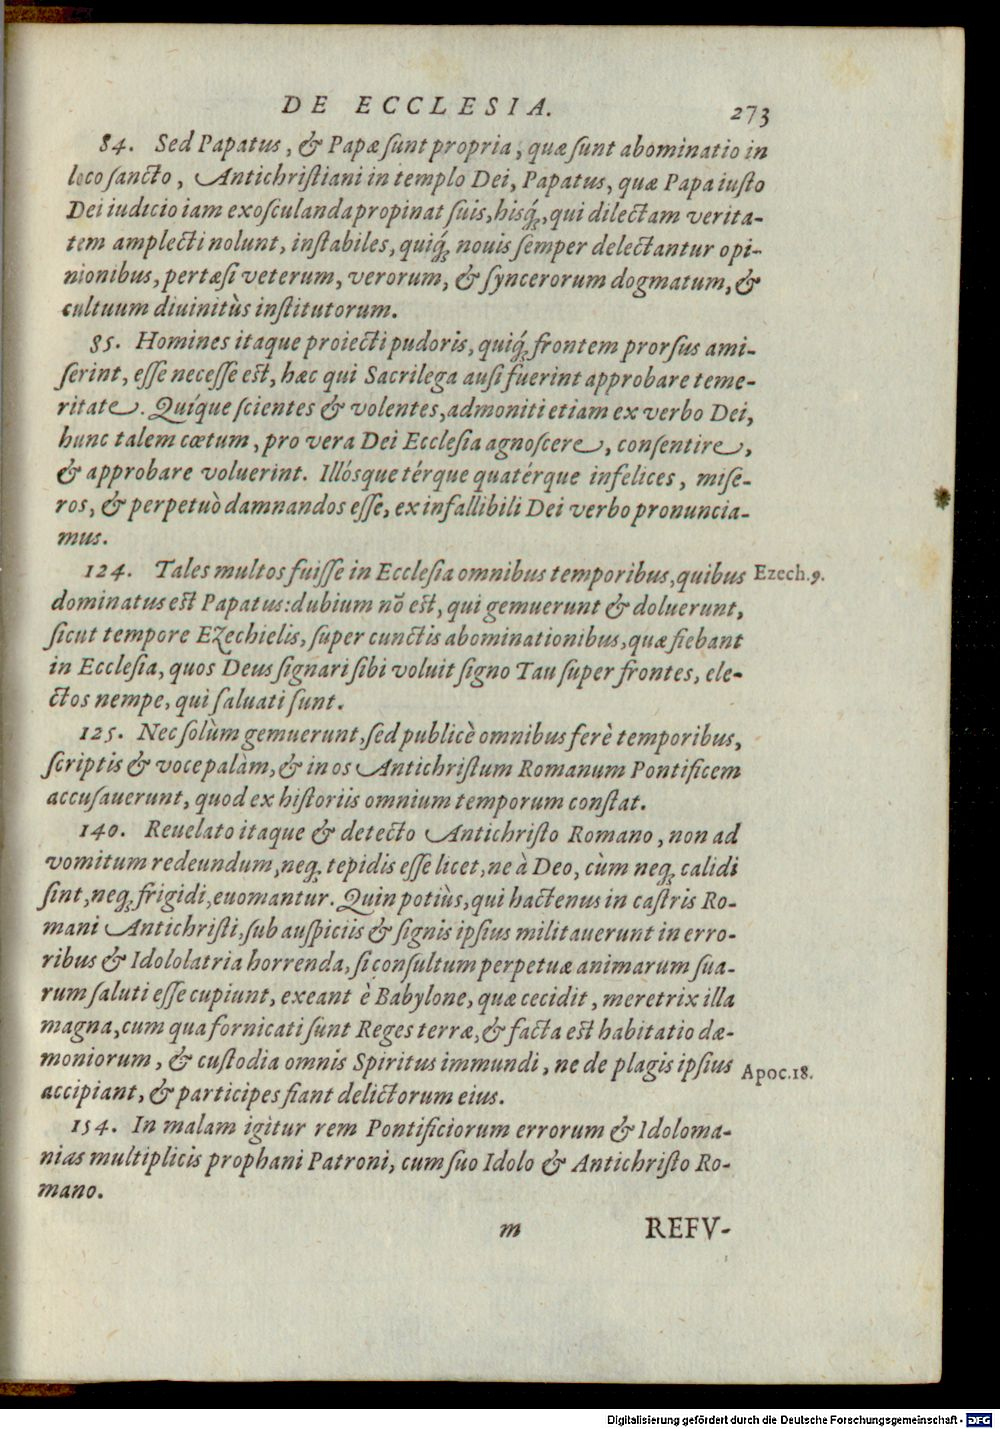 DE ECCLESIA. 273
84. Sed Papatus, & Papæ sunt propria, quæ sunt abominatio in
loco sancto, Antichristiani in templo Dei, Papatus, quæ Papa iusto
Dei iudicio iam exosculanda propinat suis, hisq́;, qui dilectam verita-
tem amplecti nolunt, instabiles, quiq́; nouis semper delectantur opi-
nionibus, pertæsi veterum, verorum, & syncerorum dogmatum, &
cultuum diuinitùs institutorum.
85. Homines itaque proiecti pudoris, quiq́; frontem prorsus ami-
serint, esse necesse est, hæc qui Sacrilega ausi fuerint approbare teme-
ritate. Quíque scientes & volentes, admoniti etiam ex verbo Dei,
hunc talem cœtum, pro vera Dei Ecclesia agnoscere, consentire,
& approbare voluerint. Illósque térque quatérque infelices, mise-
ros, & perpetuò damnandos esse, ex infallibili Dei verbo pronuncia-
mus.
124. Tales multos fuisse in Ecclesia omnibus temporibus, quibus Ezech.9.
dominatus est Papatus: dubium nō est, qui gemuerunt & doluerunt,
sicut tempore Ezechielis, super cunctis abominationibus, quæ fiebant
in Ecclesia, quos Deus signari sibi voluit signo Tau super frontes, ele-
ctos nempe, qui saluati sunt.
125. Nec solùm gemuerunt, sed publicè omnibus ferè temporibus,
scriptis & voce palàm, & in os Antichristum Romanum Pontificem
accusauerunt, quod ex historiis omnium temporum constat.
140. Reuelato itaque & detecto Antichristo Romano, non ad
vomitum redeundum, neq; tepidis esse licet, ne à Deo, cùm neq; calidi
sint, neq; frigidi, euomantur. Quin potiùs, qui hactenus in castris Ro-
mani Antichristi, sub auspiciis & signis ipsius militauerunt in erro-
ribus & Idololatria horrenda, si consultum perpetuæ animarum sua-
rum saluti esse cupiunt, exeant è Babylone, quæ cecidit, meretrix illa
magna, cum qua fornicati sunt Reges terræ, & facta est habitatio dæ-
moniorum, & custodia omnis Spiritus immundi, ne de plagis ipsius Apoc.18.
accipiant, & participes fiant delictorum eius.
154. In malam igitur rem Pontificiorum errorum & Idoloma-
nias multiplicis prophani Patroni, cum suo Idolo & Antichristo Ro-
mano.
m REFV-
Digitalisierung gefördert durch die Deutsche Forschungsgemeinschaft - DFG